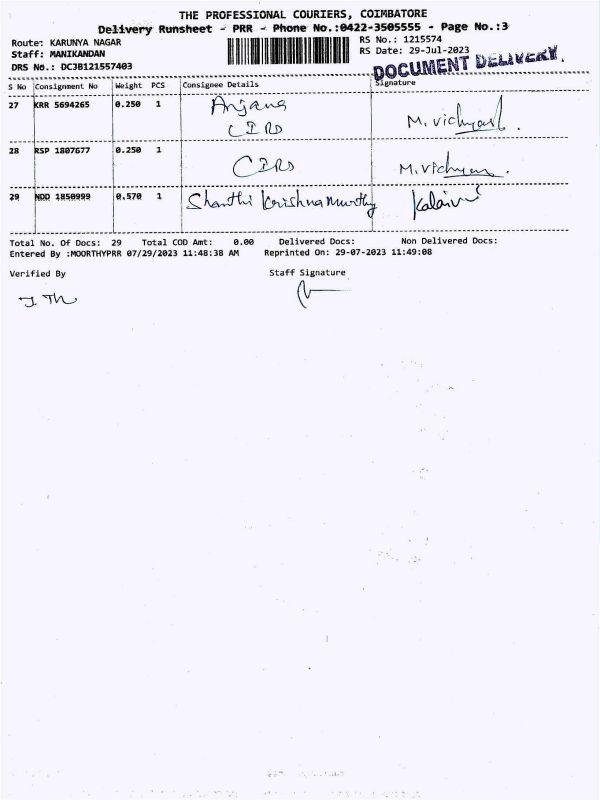 THE PROFESSIONAL COURIERS, COIMBATORE
Delivery Runsheet - PRR - Phone No.:0422-3505555 - Page No.:3
Route: KARUNYA NAGAR
RS No.: 1215574
Staff: MANIKANDAN
RS Date: 29-Jul-2023
DRS No.: DC3B121557403
DOCUMENT DELIVERY.
S No Consignment No Weight PCS Consignee Details Signature
27 KRR 5694265 0.250 1 Anjana
CIRD M. Vichyas
28 RSP 1807677 0.250 1
CIRD
29 NDD 1850999 0.570 1 Shanthi Krishnamurthy Kalaivi
Total No. Of Docs: 29 Total COD Amt: 0.00 Delivered Docs: Non Delivered Docs:
Entered By :MOORTHYPRR 07/29/2023 11:48:38 AM Reprinted On: 29-07-2023 11:49:08
Verified By Staff Signature